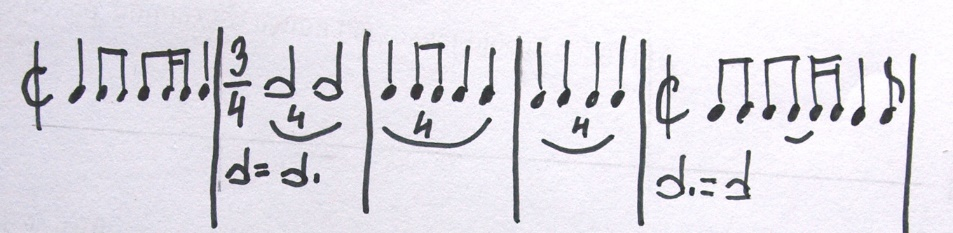 3
4
4 4 4